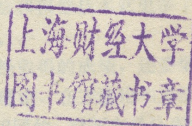 上海财经大学
图书馆藏书章